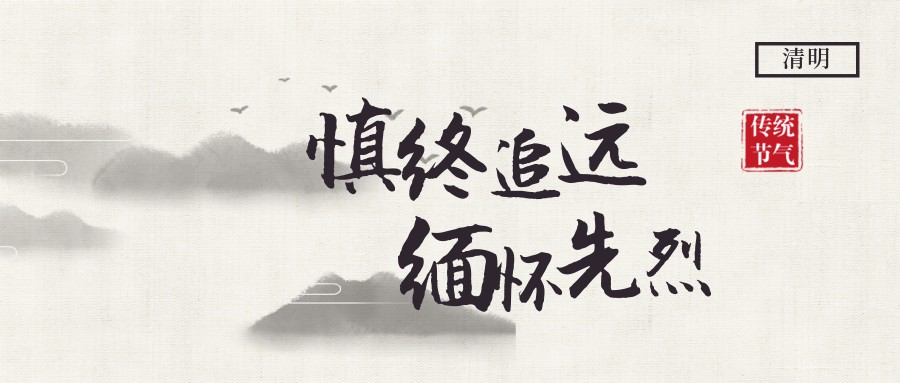 清明
传统
节气
慎终追远
缅怀先烈